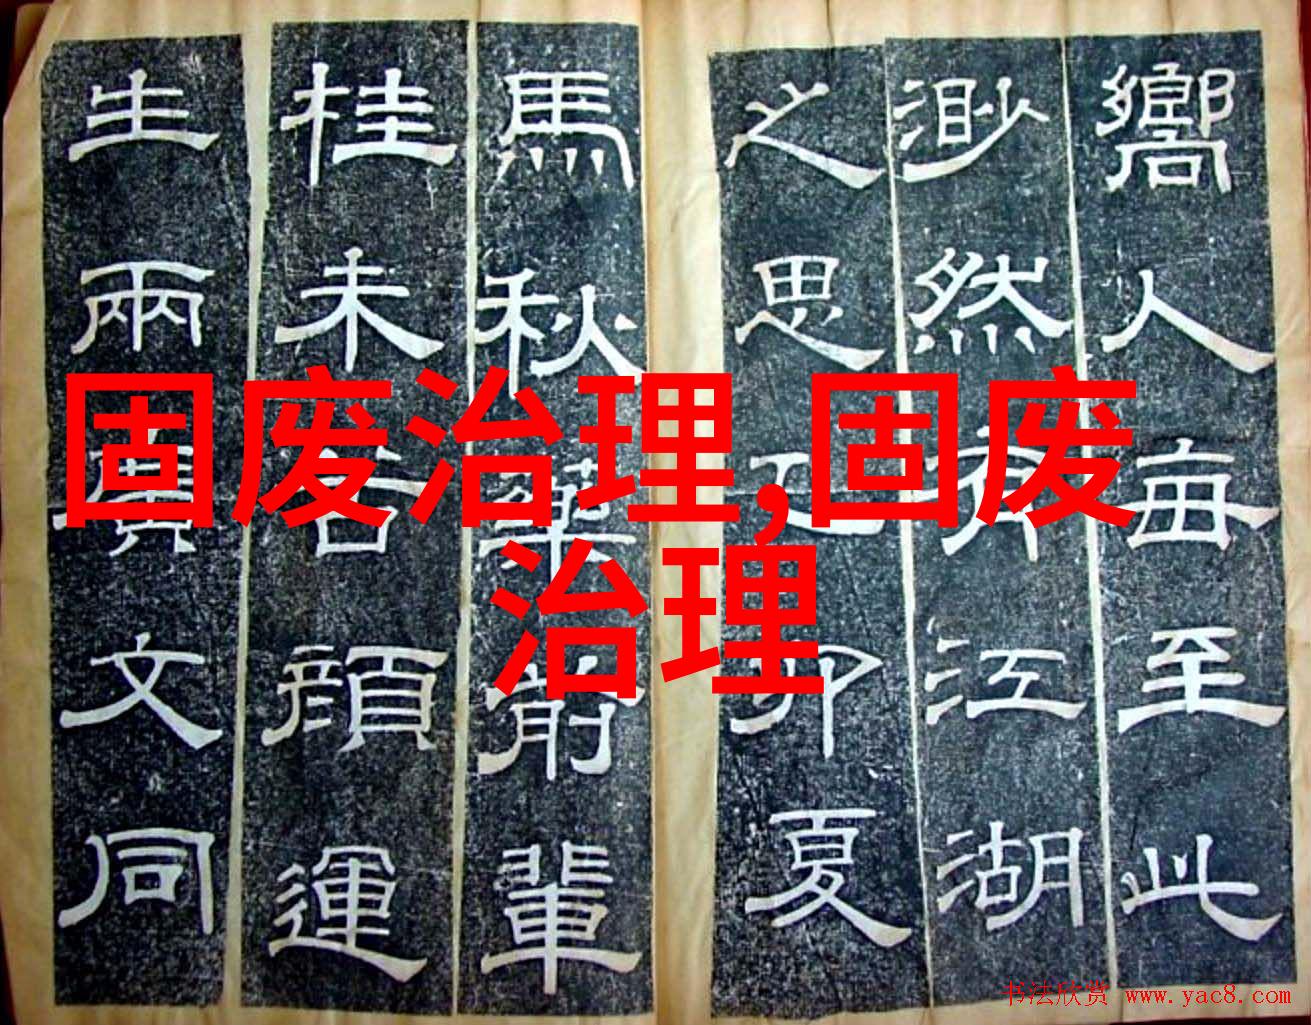 嚮人每至此
渺然有江湖
之思己卯夏
馬秋藥前輩
桂未谷顏運
生兩廣文同
固废治理,固废
治理
书法欣赏 www.yac8.com